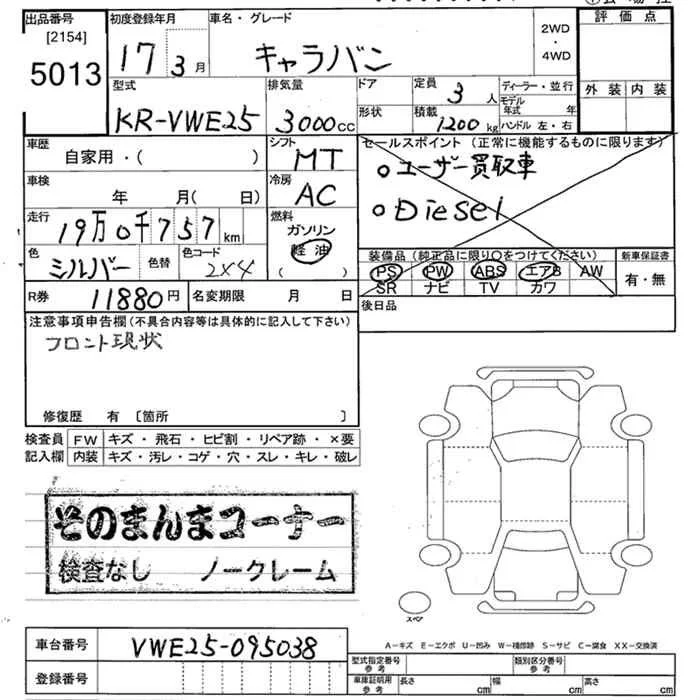 出品番号
[2154]
5013
初度登録年月
17 3月
車名・グレード
キャラバン
2WD
・
4WD
評価点
外装 内装
型式
KR-VWE25
排気量
3000cc
ドア
形状
定員
3人
積載
1200kg
ディーラー・並行
モデル年式 年
ハンドル 左・右
車歴
自家用・( )
シフト
MT
車検
年 月(日)
冷房
AC
走行
19万0千757km
燃料
ガソリン
軽油
( )
色
シルバー
色替
色コード
2X4
R券
11880円
名変期限 月 日
セールスポイント(正常に機能するものに限ります)
○ユーザー買取車
○Diesel
装備品(純正品に限り○をつけてください)
PS PW ABS エアB AW
SR ナビ TV カワ
新車保証書
有・無
後日品
注意事項申告欄(不具合内容等は具体的に記入して下さい)
フロント現状
修復歴 有 〔箇所 〕
検査員記入欄
FW キズ・飛石・ヒビ割・リペア跡・×要
内装 キズ・汚レ・コゲ・穴・スレ・キレ・破レ
そのまんまコーナー
検査なし ノークレーム
スペア
車台番号
VWE25-095038
登録番号
A-キズ E-エクボ U-凹み W-補修跡 S-サビ C-腐食 XX-交換済
型式指定番号 参考
類別区分番号 参考
車庫証明用 参考
長さ cm
幅 cm
高さ cm